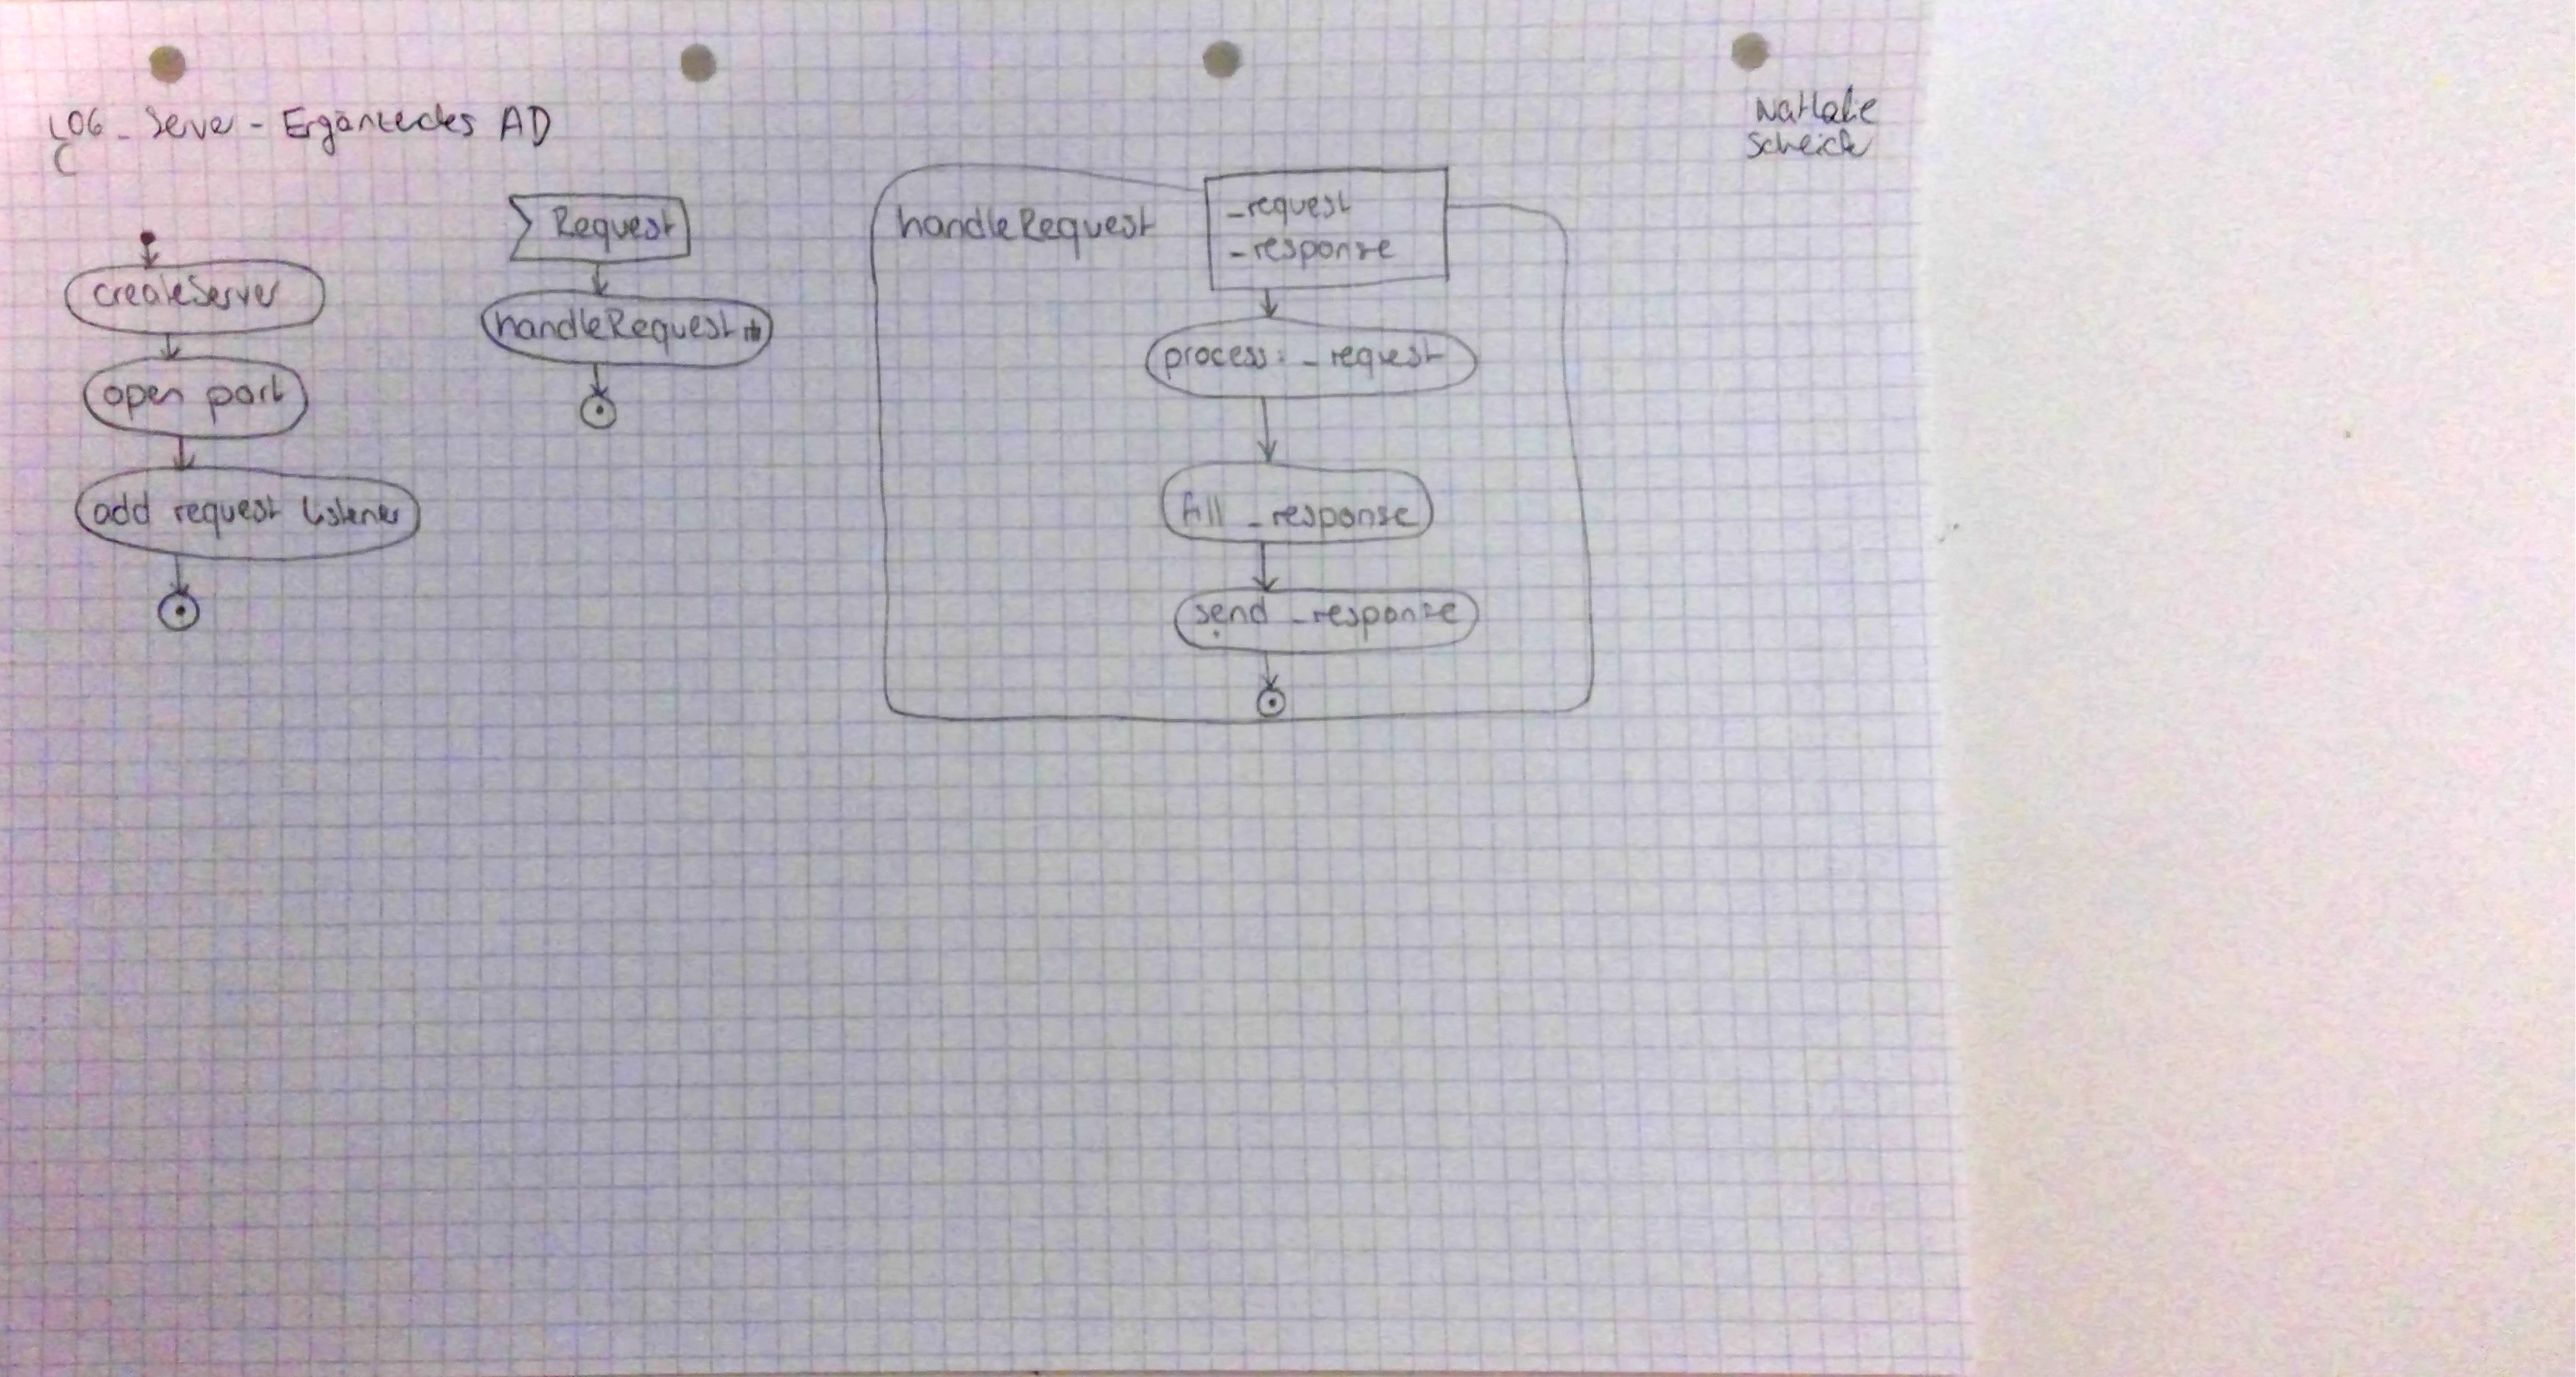 L06 - Server - Ergänzendes AD
Nathalie
Scheich
createServer
open port
add request listener
Request
handleRequest
handleRequest
_request
_response
process: _request
fill _response
send _response